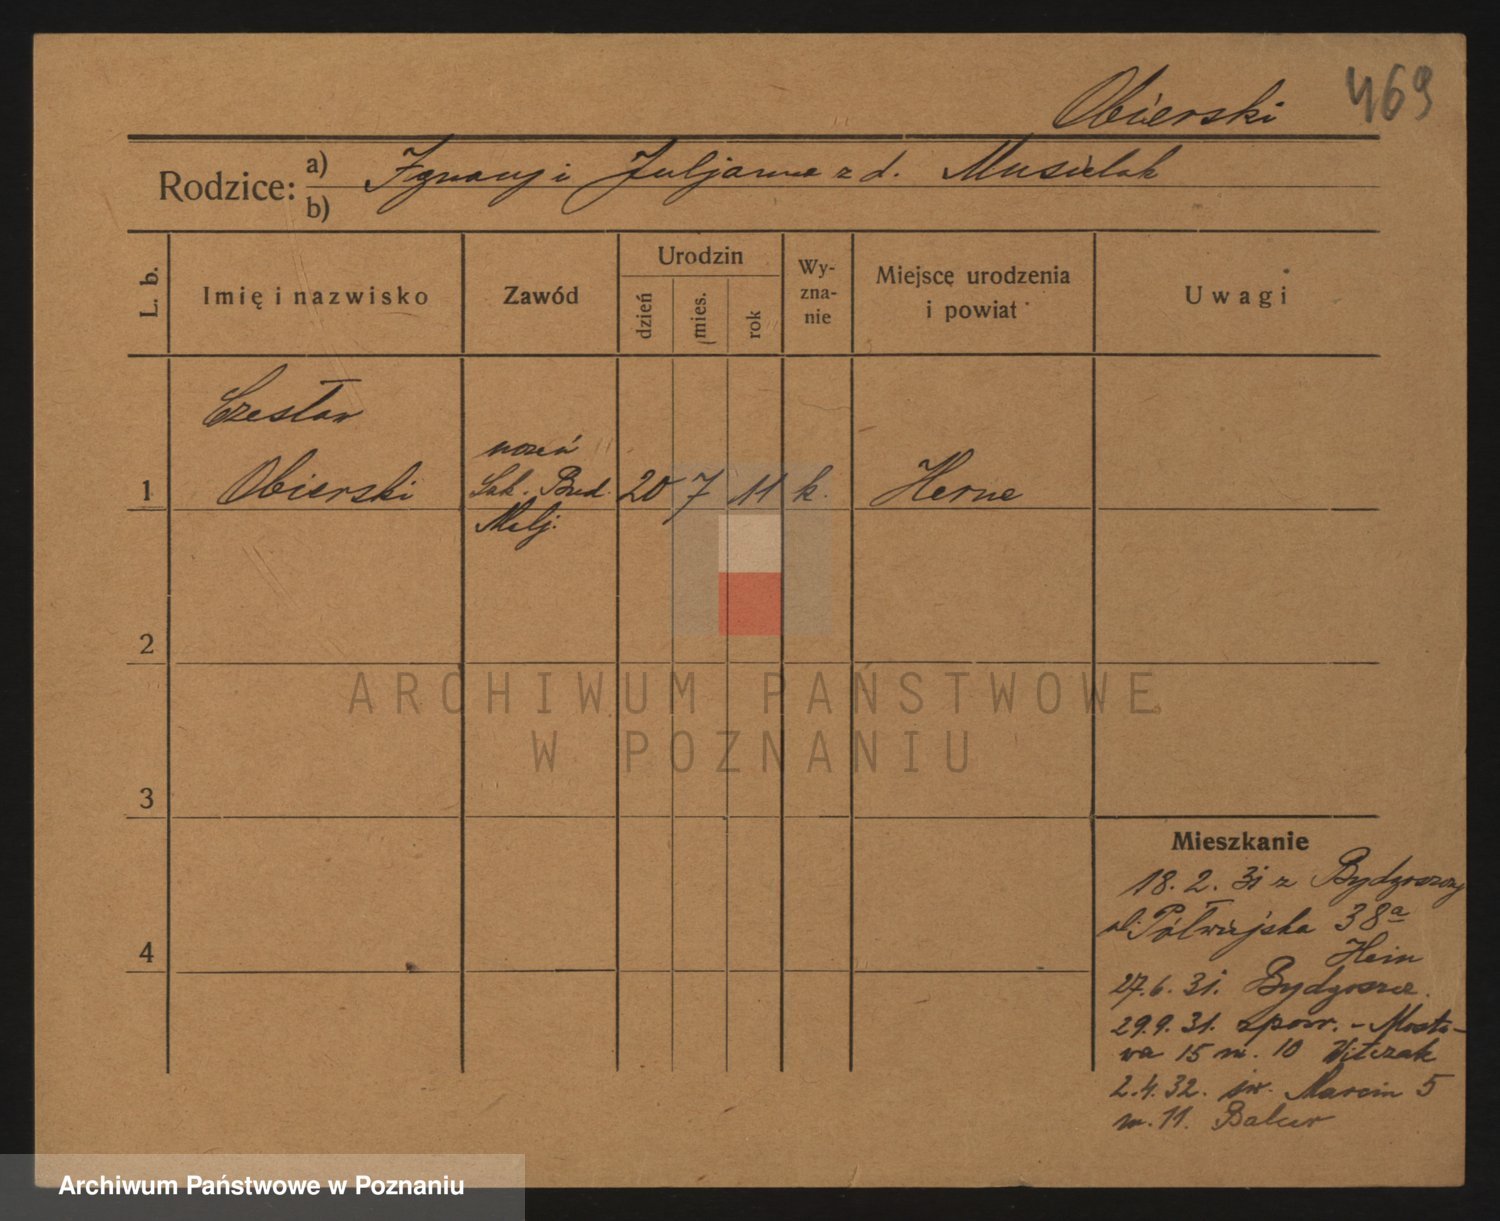 Obierski
469
Rodzice: a) Ignacy i Juljanna z d. Musielak
b)
L. b.
Imię i nazwisko
Zawód
Urodzin
dzień
mies.
rok
Wy-
zna-
nie
Miejsce urodzenia
i powiat
Uwagi
Czesław
1 Obierski
uczeń
Bud.
Melj.
20 7 11 k. Herne
2
3
4
ARCHIWUM PAŃSTWOWE
W POZNANIU
Mieszkanie
18. 2. 31 z Bydgoszczy
ul. Półwiejska 38a
Hein
27.6. 31. Bydgoszcz.
29.9. 31. zpow. - Mosto-
wa 15 m. 10 Witczak
2.4. 32. św. Marcin 5
m. 11.
Archiwum Państwowe w Poznaniu